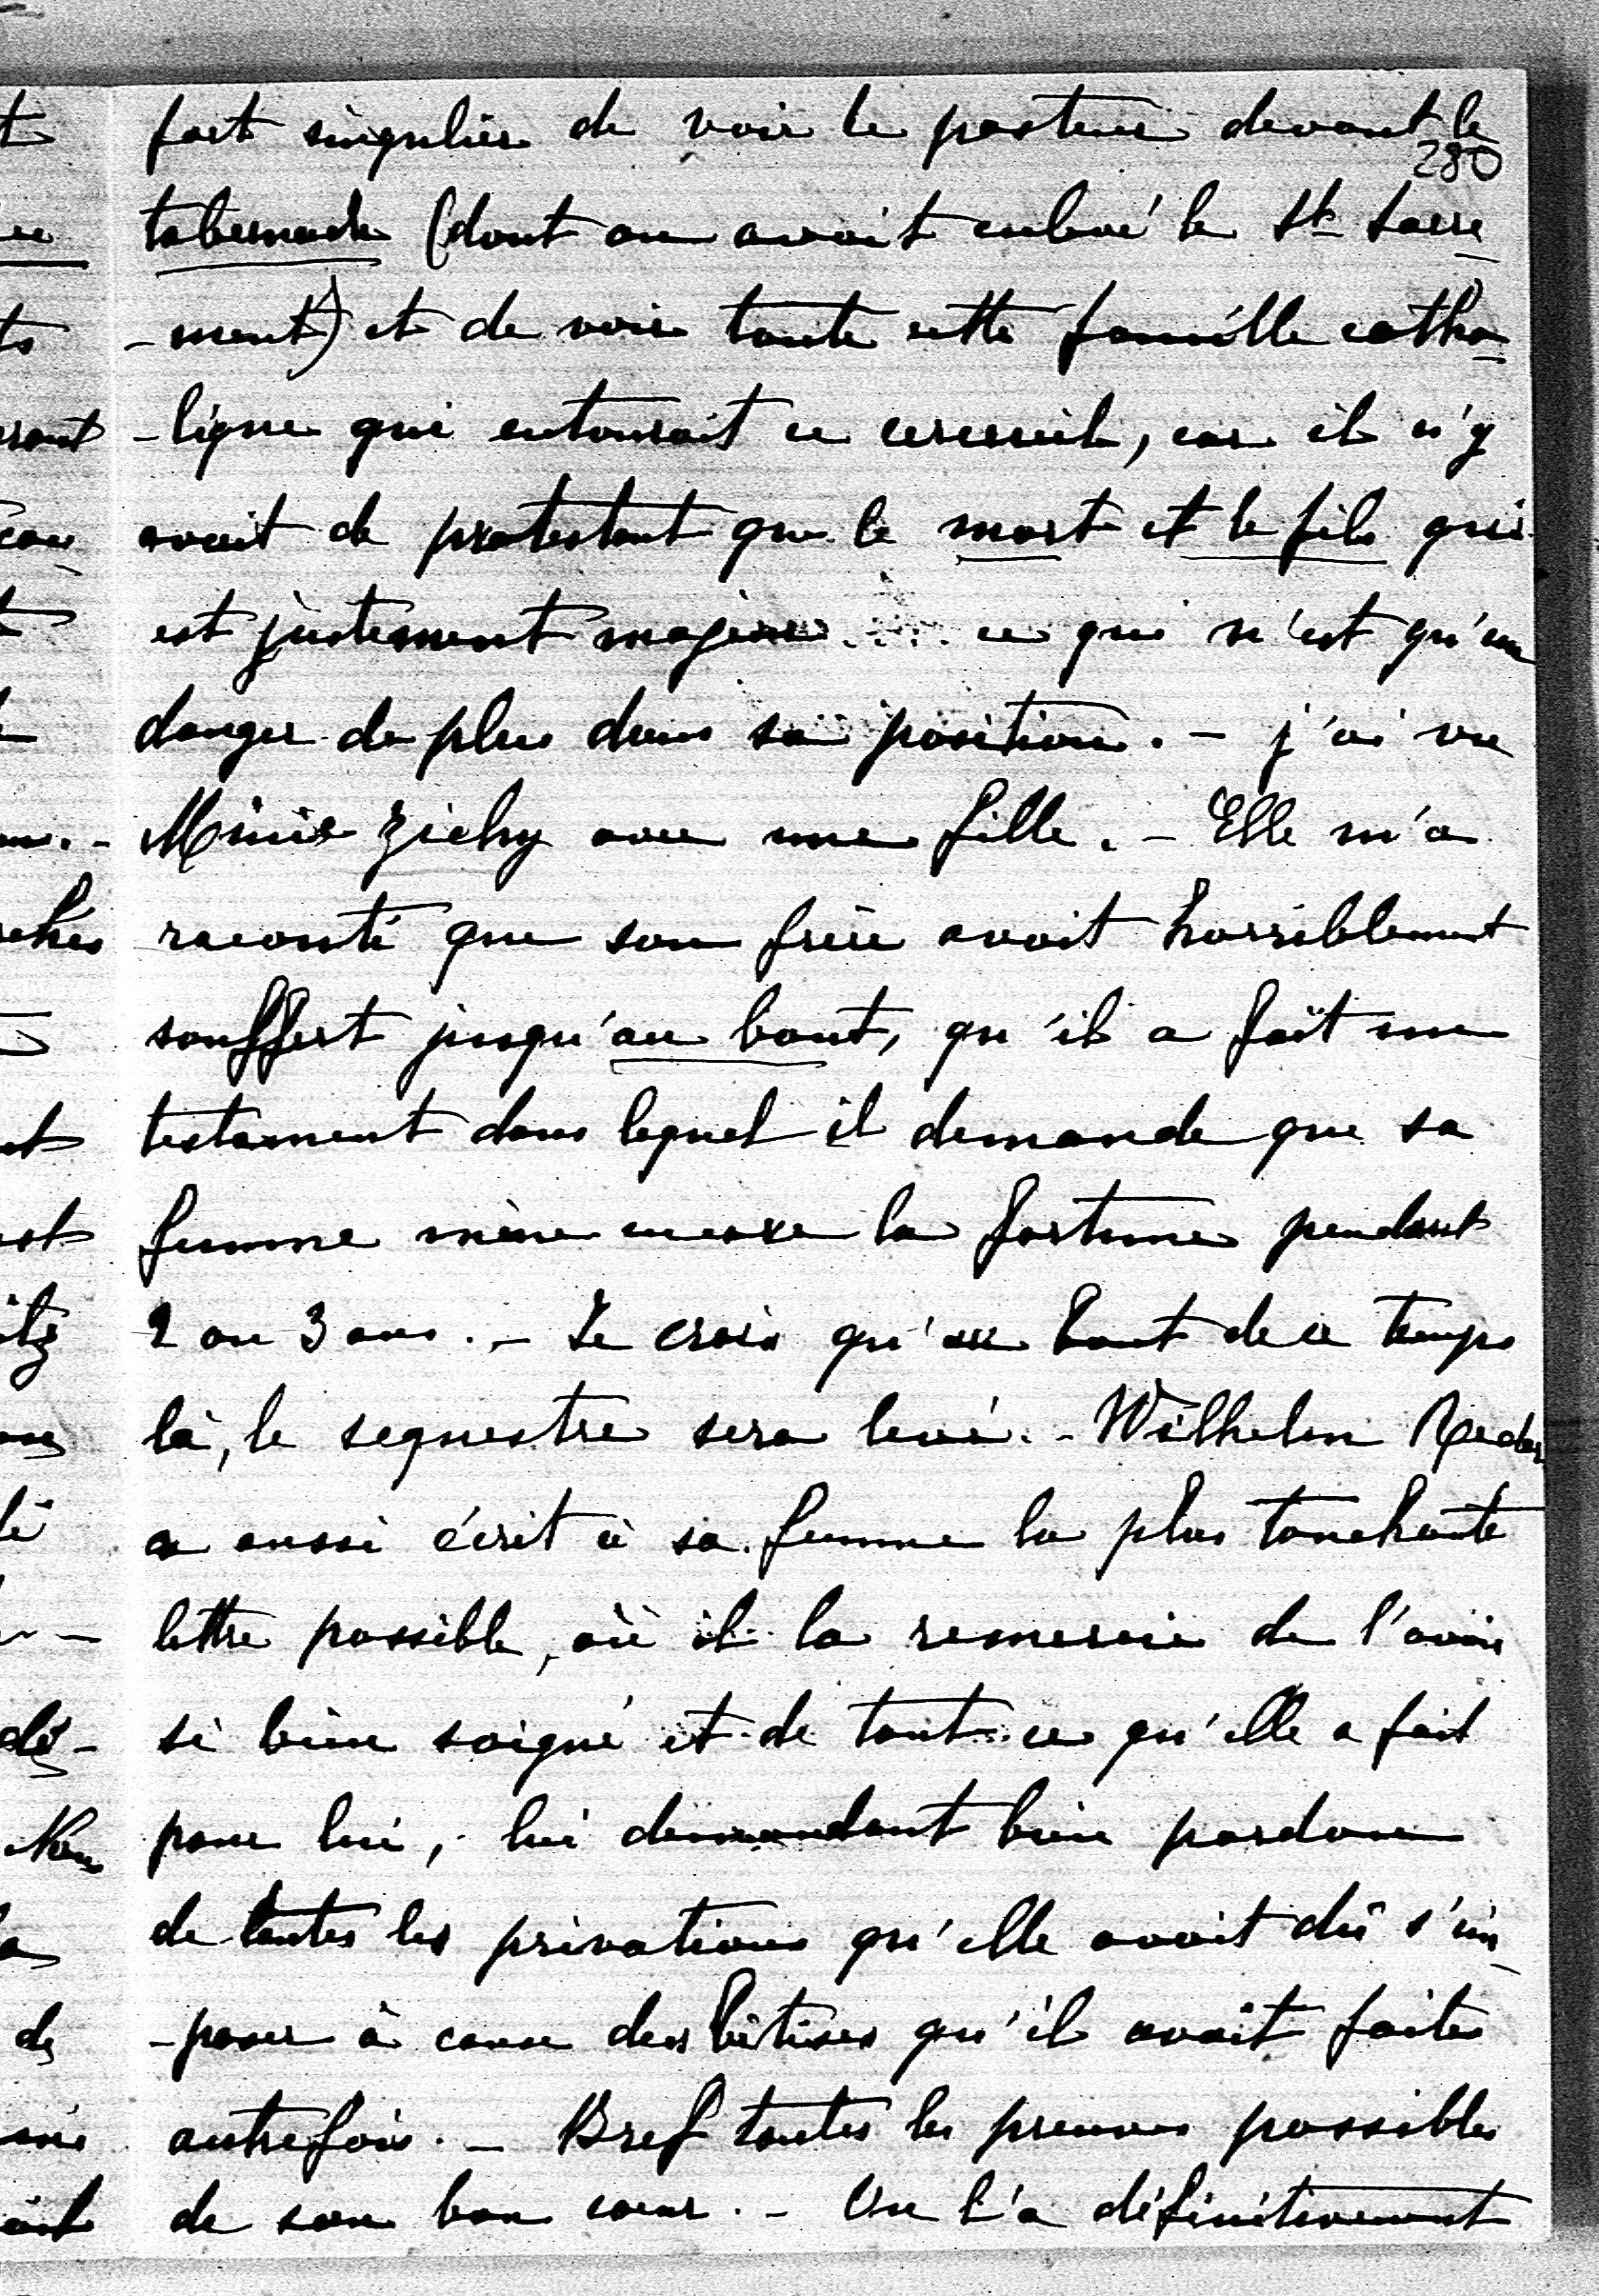 fort singulier de voir le pasteur devant le
280
tabernacle (dont on avait enlevé le St Sacre
-ment) et de voir toute cette famille catho-
-lique qui entourait ce cercueil, car il n'y
avait de protestant que le mort et le fils qui
est justement majeur .... ce qui n'est qu'un
danger de plus dans sa position. - j'ai vu
Minie Zichy avec une fille. - Elle m'a
raconté que son frère avait horriblement
souffert jusqu'au bout, qu'il a fait un
testament dans lequel il demande que sa
femme mène encore la fortune pendant
2 ou 3 ans. - Je crois qu'au bout de ce temps
là, le sequestre sera levé. - Wilhelm
a aussi écrit à sa femme la plus touchante
lettre possible, où il la remercie de l'avoir
si bien soigné et de tout ce qu'elle a fait
pour lui, lui demandant bien pardon
de toutes les privations qu'elle avait dû s'im-
-poser à cause des bêtises qu'il avait faites
autrefois. - Bref toutes les preuves possibles
de son bon cœur. - On l'a définitivement